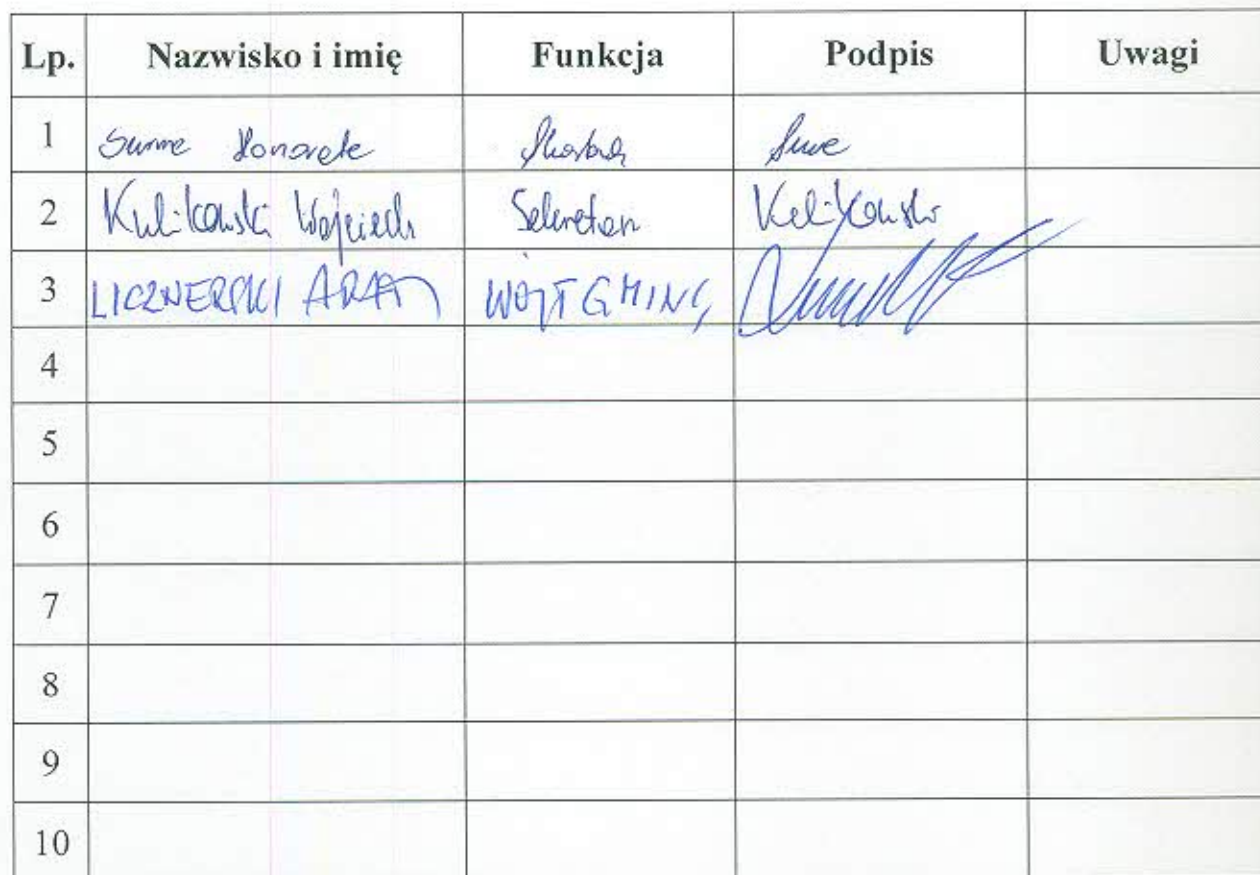 Lp. Nazwisko i imię Funkcja Podpis Uwagi
1 Honorata Skarbnik
2 Kulikowski Wojciech Sekretarz Kulikowski
3 LICZNERSKI ADAM WÓJT GMINY
4
5
6
7
8
9
10